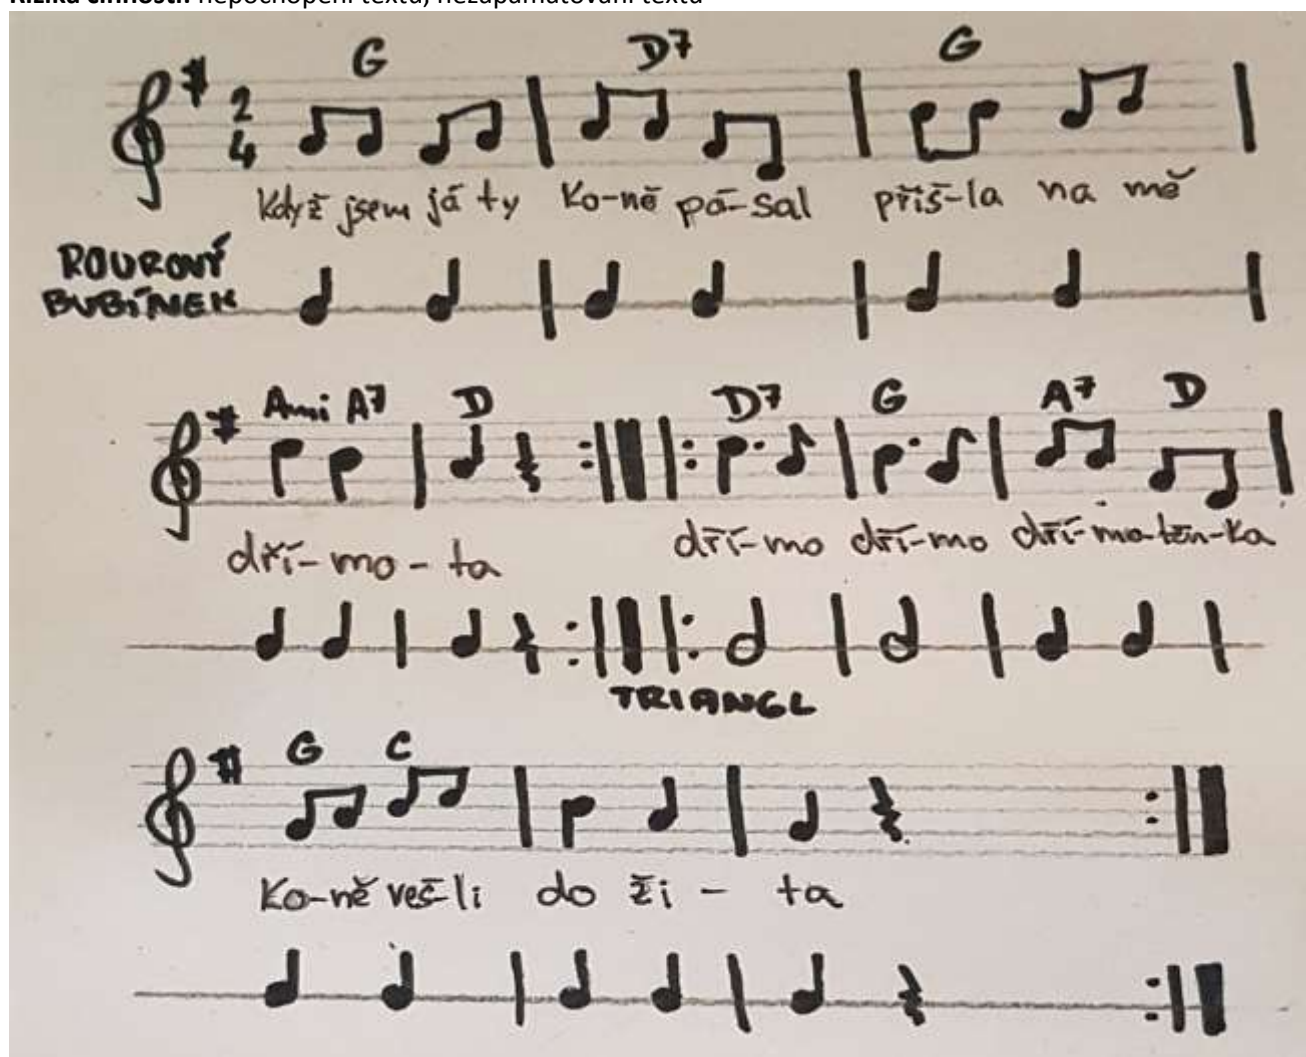 Rizika činnosti: nepochopení textu, nezapamatování textu
G D7 G
2
4
Když jsem já ty Ko-ně pá-sal přiš-la na mě
ROUROVÝ
BUBÍNEK
Ami A7 D D7 G A7 D
dří-mo-ta dří-mo dří-mo dří-mo-těn-ka
TRIANGL
G C
Ko-ně veš-li do ži-ta